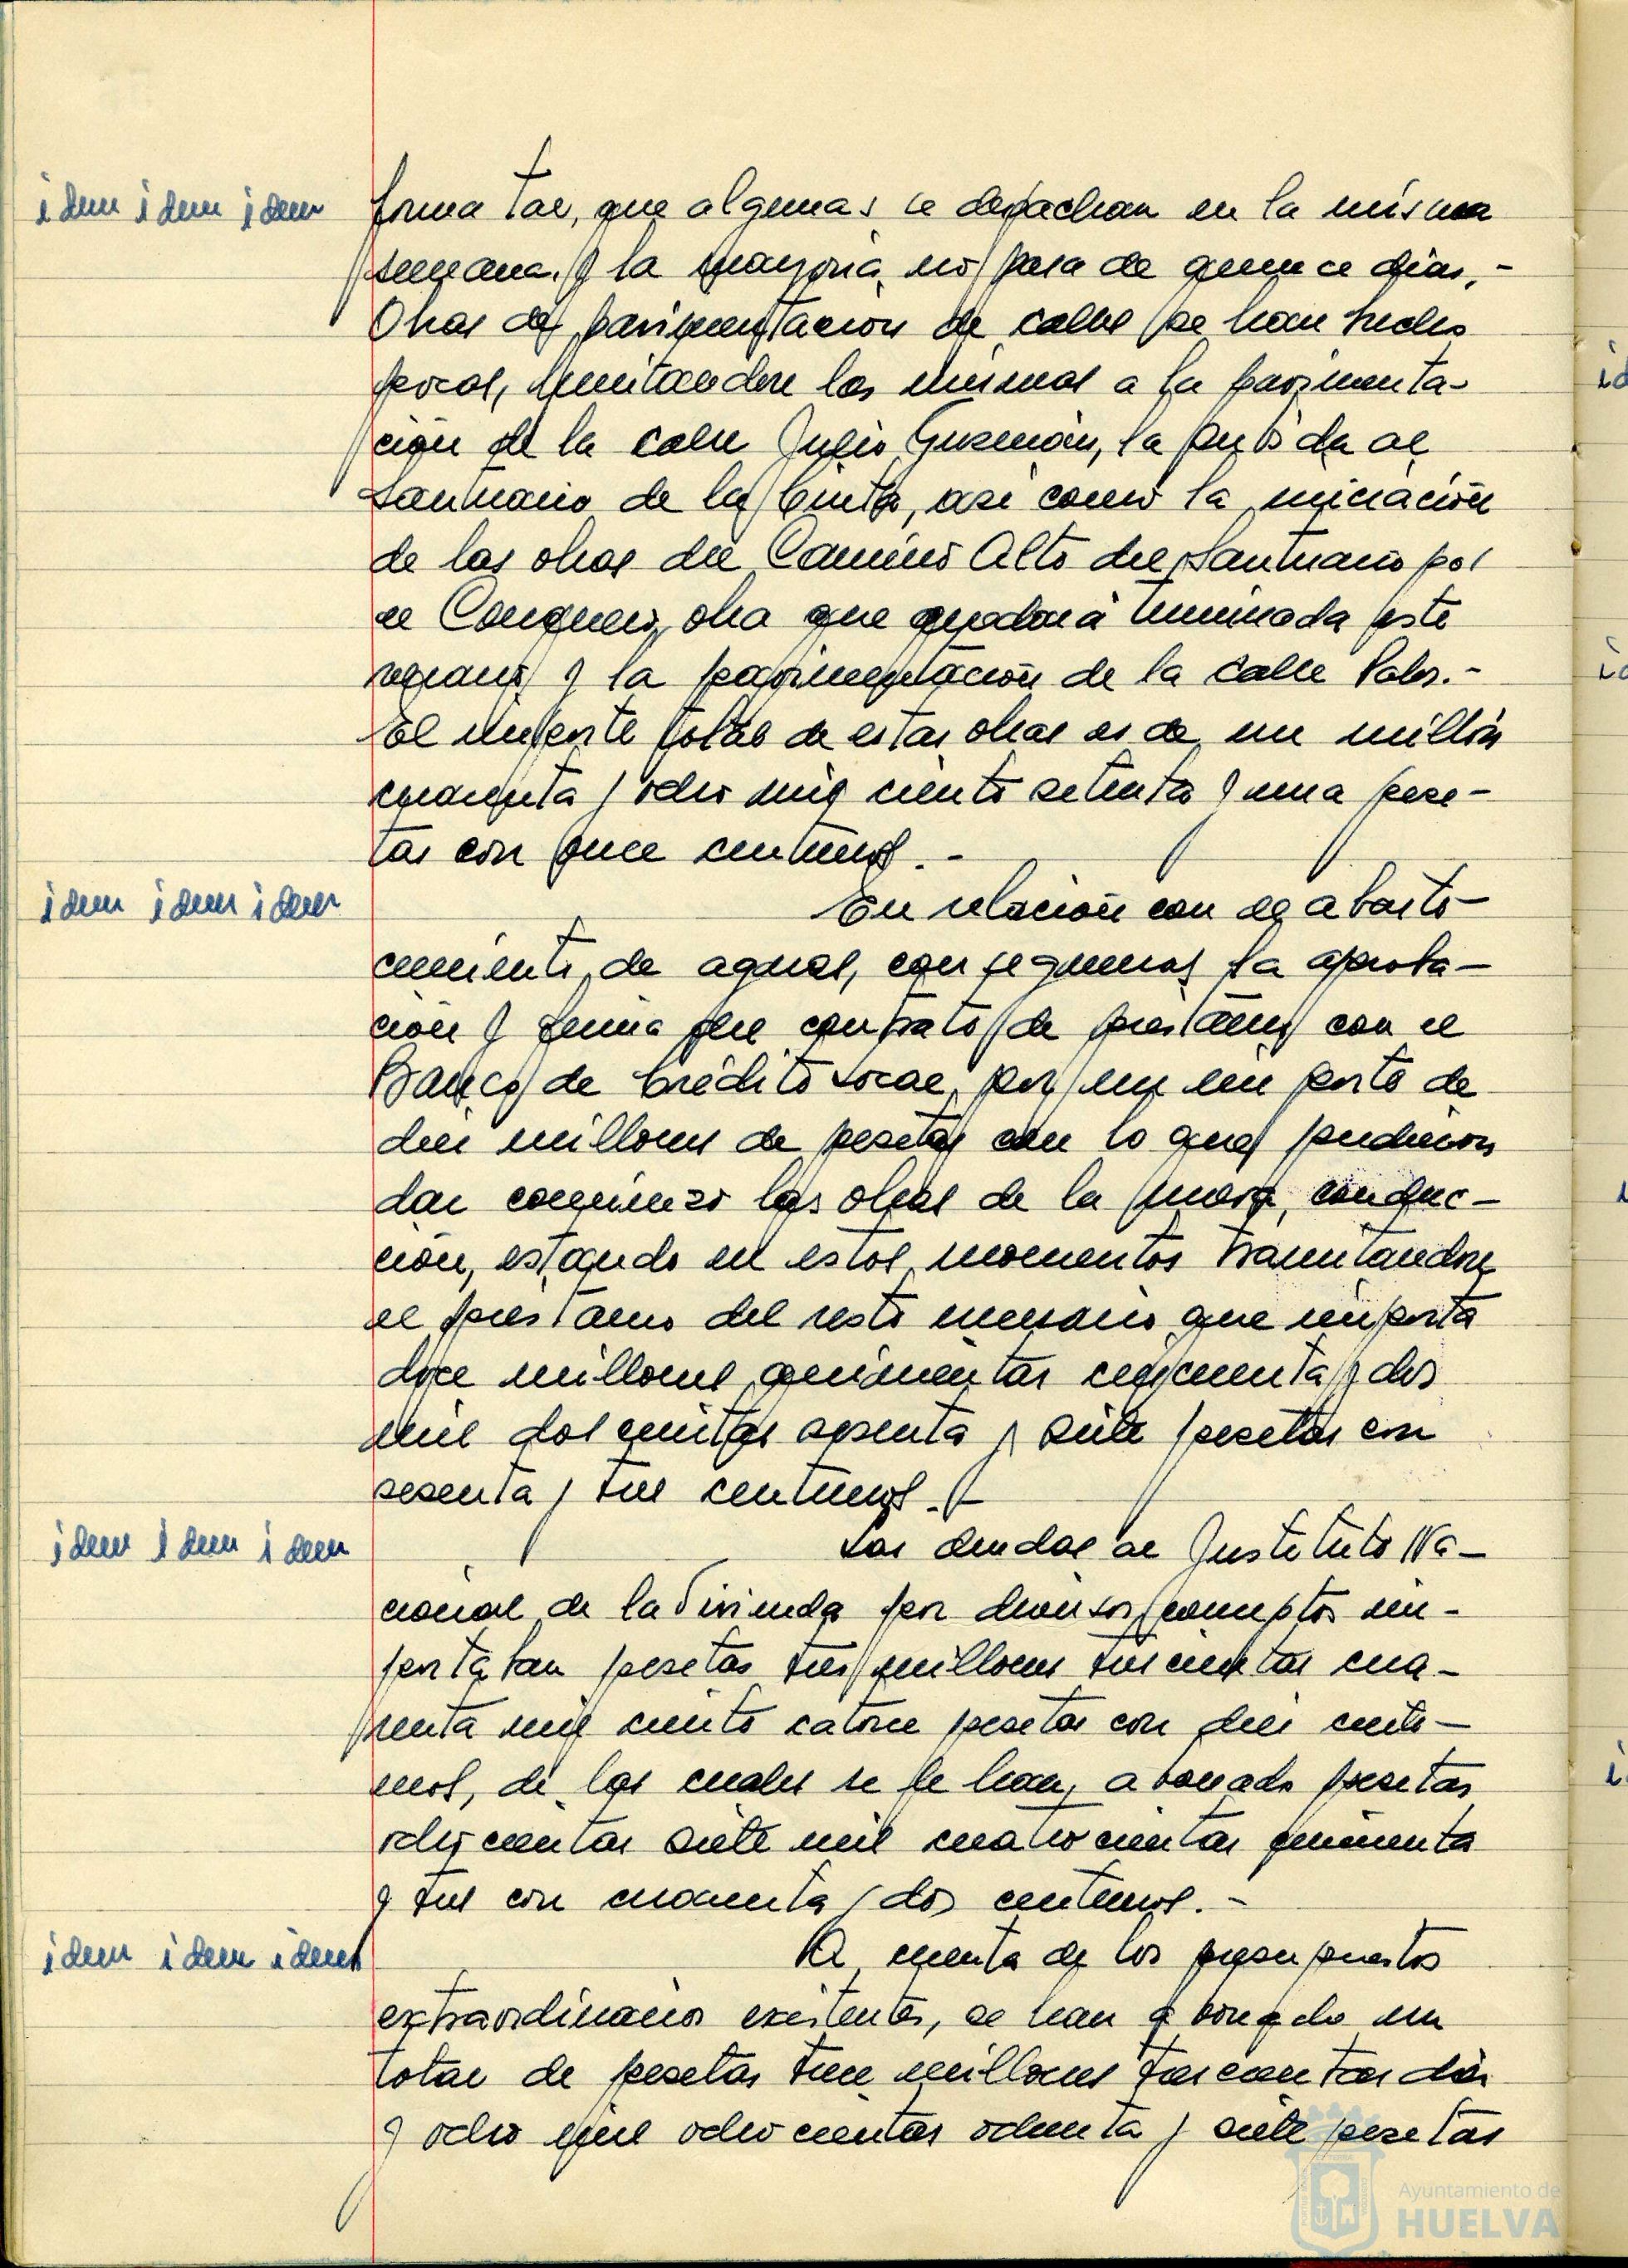 idem idem idem
forma tal, que algunas se despachan en la misma
semana y la mayoría no pasa de quince días.-
Obras de pavimentación de calles se han hecho
pocas, limitandose las mismas a la pavimenta-
ción de la calle Julio Guzmán, la subida al
Santuario de la Cinta, asi como la iniciación
de las obras del Camino Alto del Santuario por
el Conquero, obra que quedará terminada este
verano y la pavimentación de la calle Palos.-
El importe total de estas obras es de un millón
cuarenta y ocho mil ciento setenta y una pese-
tas con once centimos.-
idem idem idem
En relación con el abaste-
cimiento de aguas, conseguimos la aproba-
ción y firma del contrato de prestamo con el
Banco de Crédito Local, por un importe de
diez millones de pesetas con lo que pudieron
dar comienzo las obras de la nueva conduc-
ción, estando en estos momentos tramitandose
el prestamo del resto necesario que importa
doce millones quinientas cincuenta y dos
mil doscientas sesenta y siete pesetas con
sesenta y tres centimos.-
idem idem idem
Las deudas al Instituto Na-
cional de la Vivienda por diversos conceptos im-
portaban pesetas tres millones trescientas cua-
renta mil ciento catorce pesetas con diez centi-
mos, de las cuales se le han abonado pesetas
ochocientas siete mil cuatrocientas cincuenta
y tres con cuarenta y dos centimos.-
idem idem idem
A cuenta de los presupuestos
extraordinarios existentes, se han abonado un
total de pesetas trece millones trescientas diez
y ocho mil ochocientas ochenta y siete pesetas
Ayuntamiento de
HUELVA